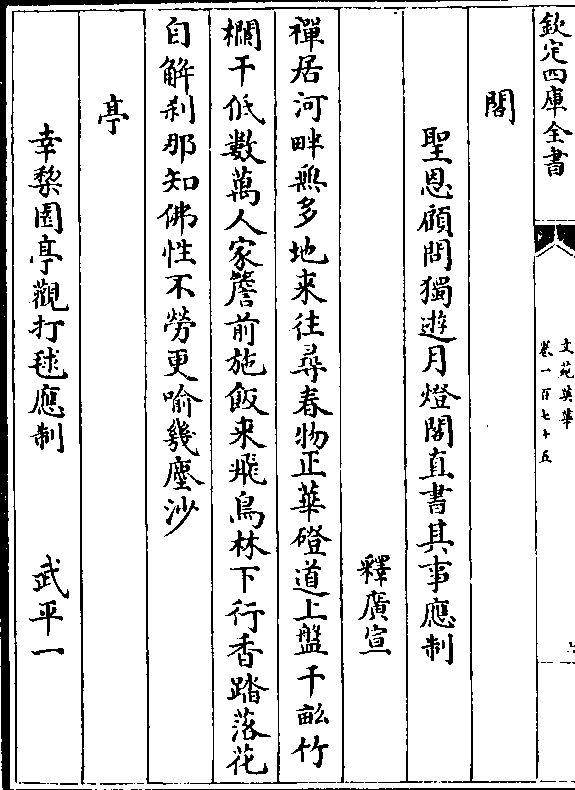 欽定四庫全書
文苑英華
卷一百七十五
閣
聖恩顧問獨遊月燈閣直書其事應制
釋廣宣
禪居河畔無多地來往尋春物正華磴道上盤千畝竹
欄干低數萬人家簷前施飯來飛鳥林下行香踏落花
自解刹那知佛性不勞更喻幾塵沙
亭
幸棃園亭觀打毬應制 武平一